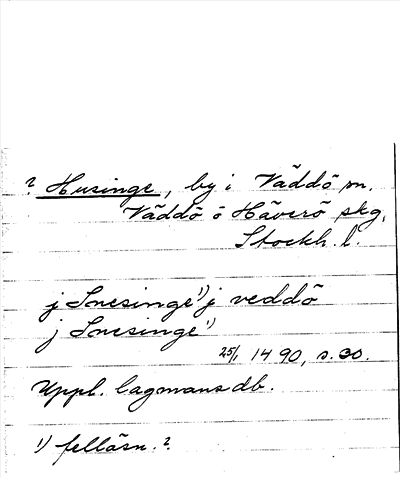 ? Husinge, by i Väddö sn.
Väddö o Häverö skg,
Stockh. l.
j Snesinge¹⁾ j veddö
j Snesinge¹⁾
25/1 1490, s. 30.
Uppl. lagmansdb.
1) felläsn.?